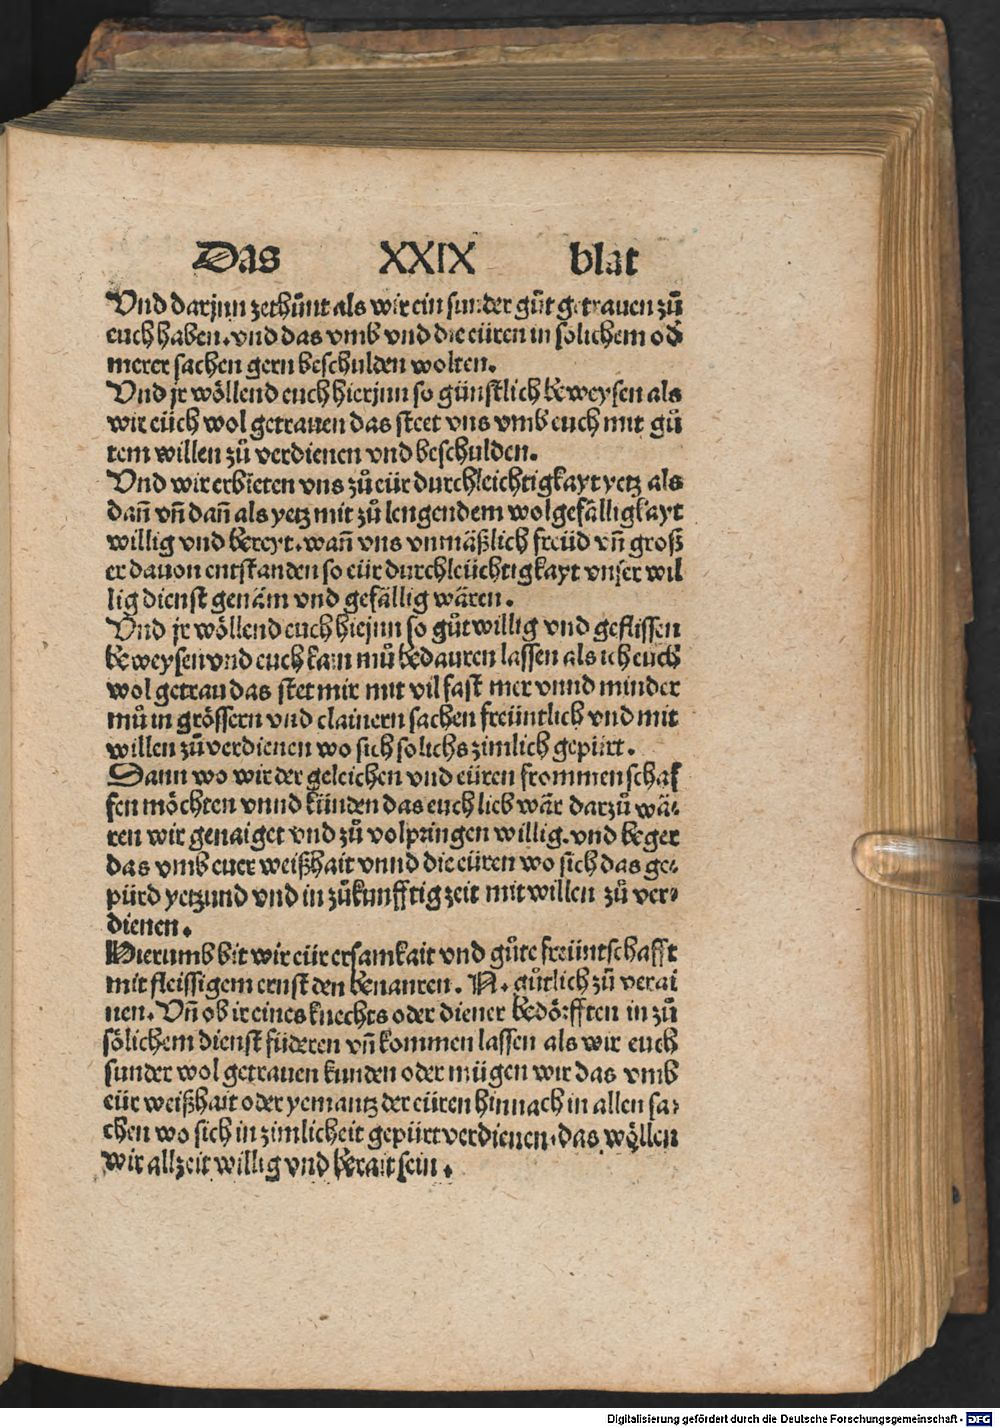 Das XXIX blat
Vnd darjnn zethůnt als wir ein sunder gůt getrauen zů
euch haben. vnd das vmb vnd die eüren in solichem oď
merer sachen gern beschulden wolten.
Vnd jr wöllend euch hierjnn so günstlich beweysen als
wir eüch wol getrauen das steet vns vmb euch mit gů
tem willen zů verdienen vnd beschulden.
Vnd wir erbieten vns zů eür durchleichtigkayt yetz als
dañ vñ dañ als yetz mit zů lengendem wolgefälligkayt
willig vnd bereyt. wañ vns vnmäßlich freüd vñ groß
er dauon entstanden so eür durchleüchtigkayt vnser wil
lig dienst genäm vnd gefällig wären.
Vnd jr wöllend euch hiejnn so gůtwillig vnd geflissen
beweysen vnd euch kain mů bedauren lassen als ich euch
wol getrau das stet mir mit vil fast mer vnnd minder
mů in grössern vnd clainern sachen freüntlich vnd mit
willen zůuerdienen wo sich solichs zimlich gepürt.
Dann wo wir der geleichen vnd eüren frommen schaf
fen möchten vnnd künden das euch lieb wär darzů wä⸗
ren wir genaiget vnd zů volpringen willig. vnd beger
das vmb euer weißhait vnnd die eüren wo sich das ge⸗
pürd yetzund vnd in zůkunfftig zeit mit willen zů ver⸗
dienen.
Hierumb bit wir eür ersamkait vnd gůte freüntschafft
mit fleissigem ernst den benanten. N. gůtlich zů verai
nen. Vñ ob ir eines knechts oder diener bedörfften in zů
sölichem dienst füderen vñ kommen lassen als wir euch
sunder wol getrauen kunden oder mügen wir das vmb
eür weißhait oder yemantz der eüren hinnach in allen sa⸗
chen wo sich in zimlicheit gepürt verdienen. das wöllen
wir allzeit willig vnd berait sein.
Digitalisierung gefördert durch die Deutsche Forschungsgemeinschaft - DFG